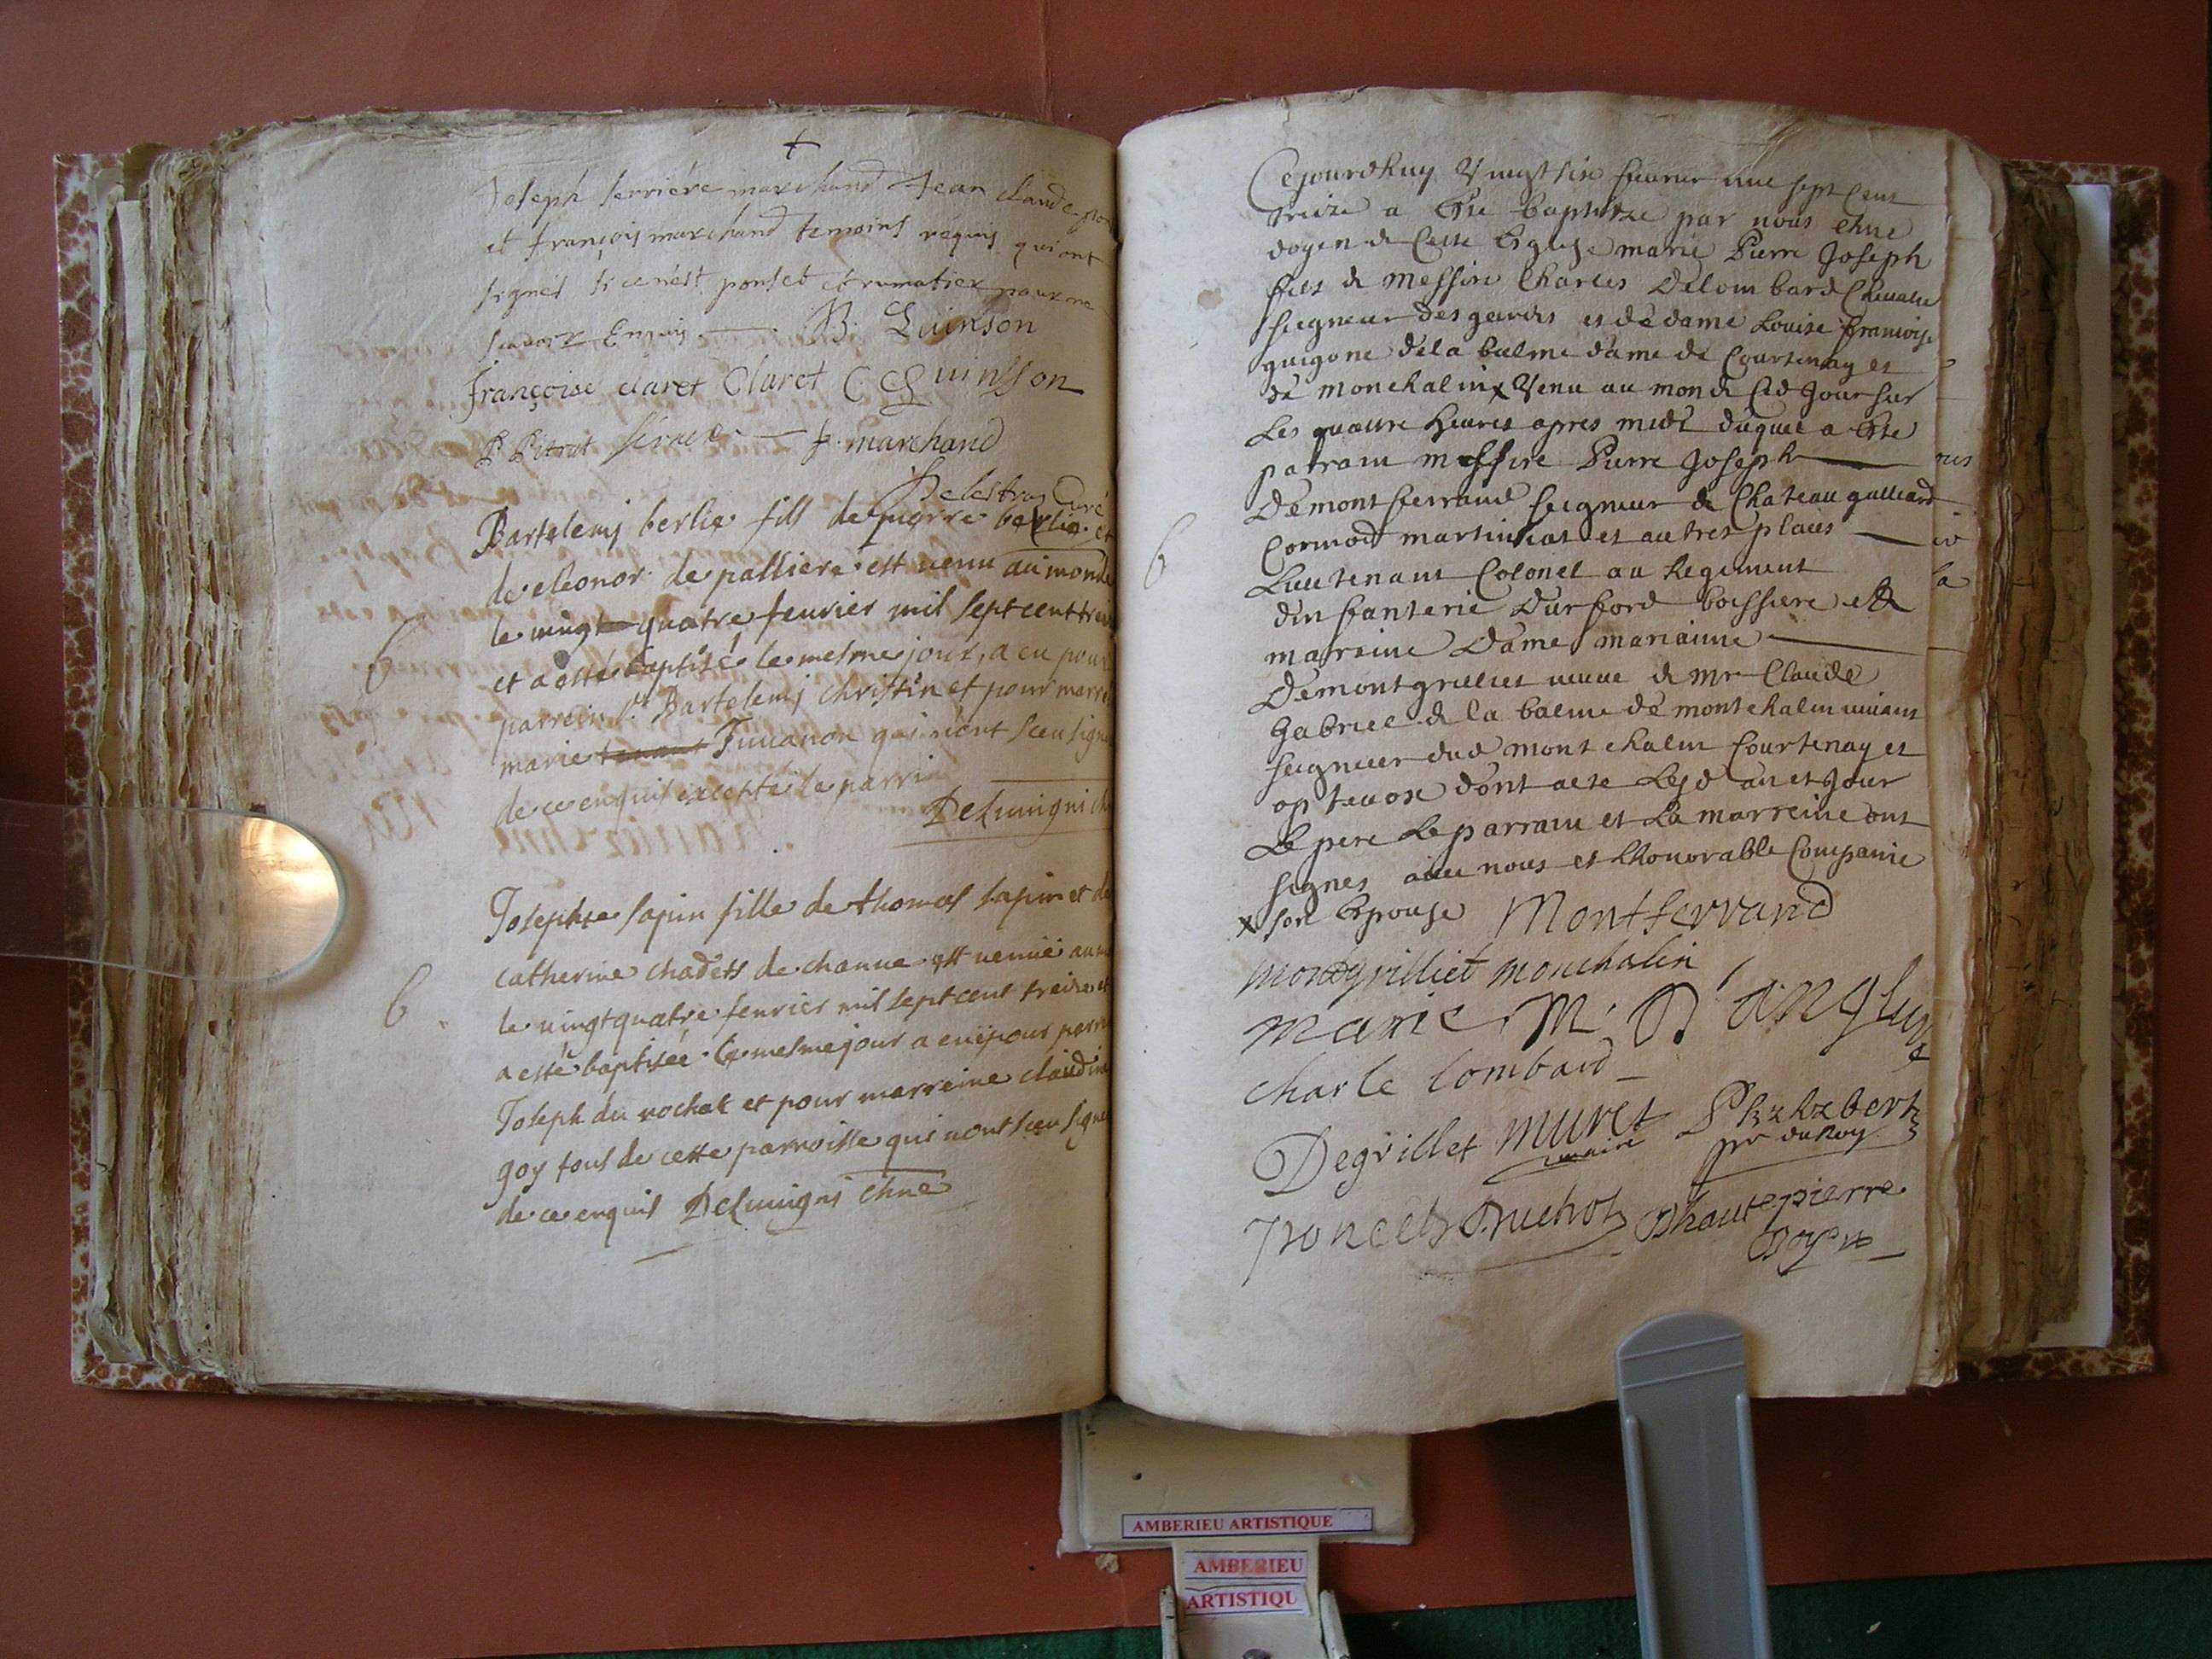 +
Joseph serriére marchand Jean claude
et françois marchand temoins requis qui ont
signés si ce nést ponset et rumatier pour ne
scavoir Enquis — B. Quinson
françoise claret Claret C Quinsson
P Pitrat serriere — f. marchand
Delestra Curé
Bartelemj berlie fils de pierre berlie et
de eleonor de palliere est venu au monde
le vingt quatre feurier mil sept cent trei
et a esté baptisé le mesme jour, a eu pour
parrein sr Bartelemj christin et pour marre
marie Juuanon qui n'ont sceu signe
de ce enquis excepté le parrin
Deluuigni ch
6
Josephte sapin fille de thomas sapin et de
catherine chadets de chanue est uenüe au m
le uingtquatre feurier mil sept cent treize et
a esté baptisée le mesme jour a eu pour parre
Joseph du rochat et pour marreine claudine
goy tous de cette parroisse qui n'ont sceu signe
de ce enquis Deluuigni chne
6
Cejourdhuy Vingt six feurier mil sept Cent
treize a este baptitze par nous chne
doyen de Cette Eglise marie Pierre Joseph
fils de messire Charles Delombard Cheualier
seigneur des gardes et de dame Louise francoise
guigone dela balme dame de Courtenay et
de monchalin x Venu au monde led Jour sur
Les quattre heures apres midi duquel a este
parrain messire Pierre Joseph —
Demontferrand seigneur de Chateau galliard
Cormod martinat et autres places —
6
Lieutenant Colonel au Regiment
dinfanterie Durford boissiere et
marreine Dame marianne —
Demontgrillet veuue de mr Claude
Gabriel de la balme de montchalin uiuant
seigneur dud montchalin Courtenay et
opteuox dont acte Lesd an et Jour
Le pere Le parrain et La marreine ont
signes auec nous et Lhonorable Companie
x son Epouse Montferrand
montgrilliet monchalin
marie M.
charle lombard
Degrillet muret
maire
pr du Roy
Dhautepierre
Doyen